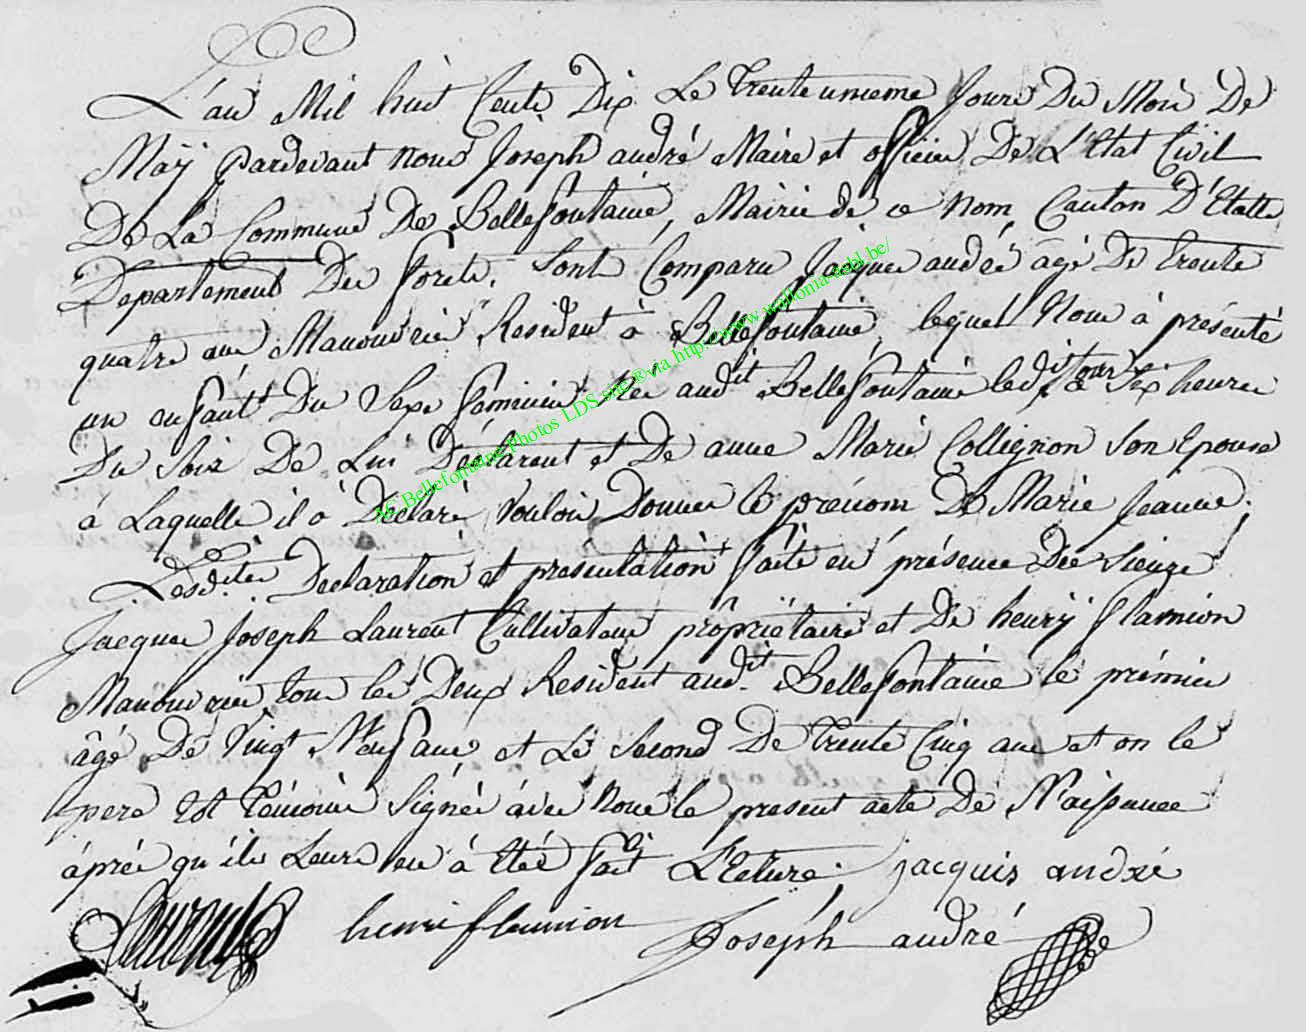 L'an Mil huit Cent Dix Le Trente unieme Jour Du Mois De
Maÿ Pardevant nous Joseph andré Maire et officier De L'Etat Civil
De La Commune De Bellefontaine, Mairie de ce Nom, Canton D'Etalle
Departement Des forets, sont Comparu Jacques andré âgé De trente
quatre ans Manouvrier Resident à Bellefontaine, lequel Nous à présenté
un enfant Du Sexe féminin Née aud.it Bellefontaine ledit jour à Six heures
Du Soir De Lui Déclarant et De anne Marie Collignon Son Epouse
à Laquelle il à Déclaré Vouloir Donner le prénom De Marie Jeanne.
Lesd.ites Declaration et presentation faite en présence Des Sieurs
Jacques Joseph Laurent Cultivateur propriétaire et De henrÿ flamion
Manouvrier tous les Deux Resident aud.it Bellefontaine le prémier
âgé De Vingt Neuf ans, et Le Second De Trente Cinq ans et on le
pere Et Témoins Signés avec Nous le present acte De Naissance
après qu'ils Leurs en à Eté fait L'Ecture. jacquis andré
Laurent henri flamion Joséph andré
AC Bellefontaine Photos LDS site ® via http://www.wallonia-asbl.be/